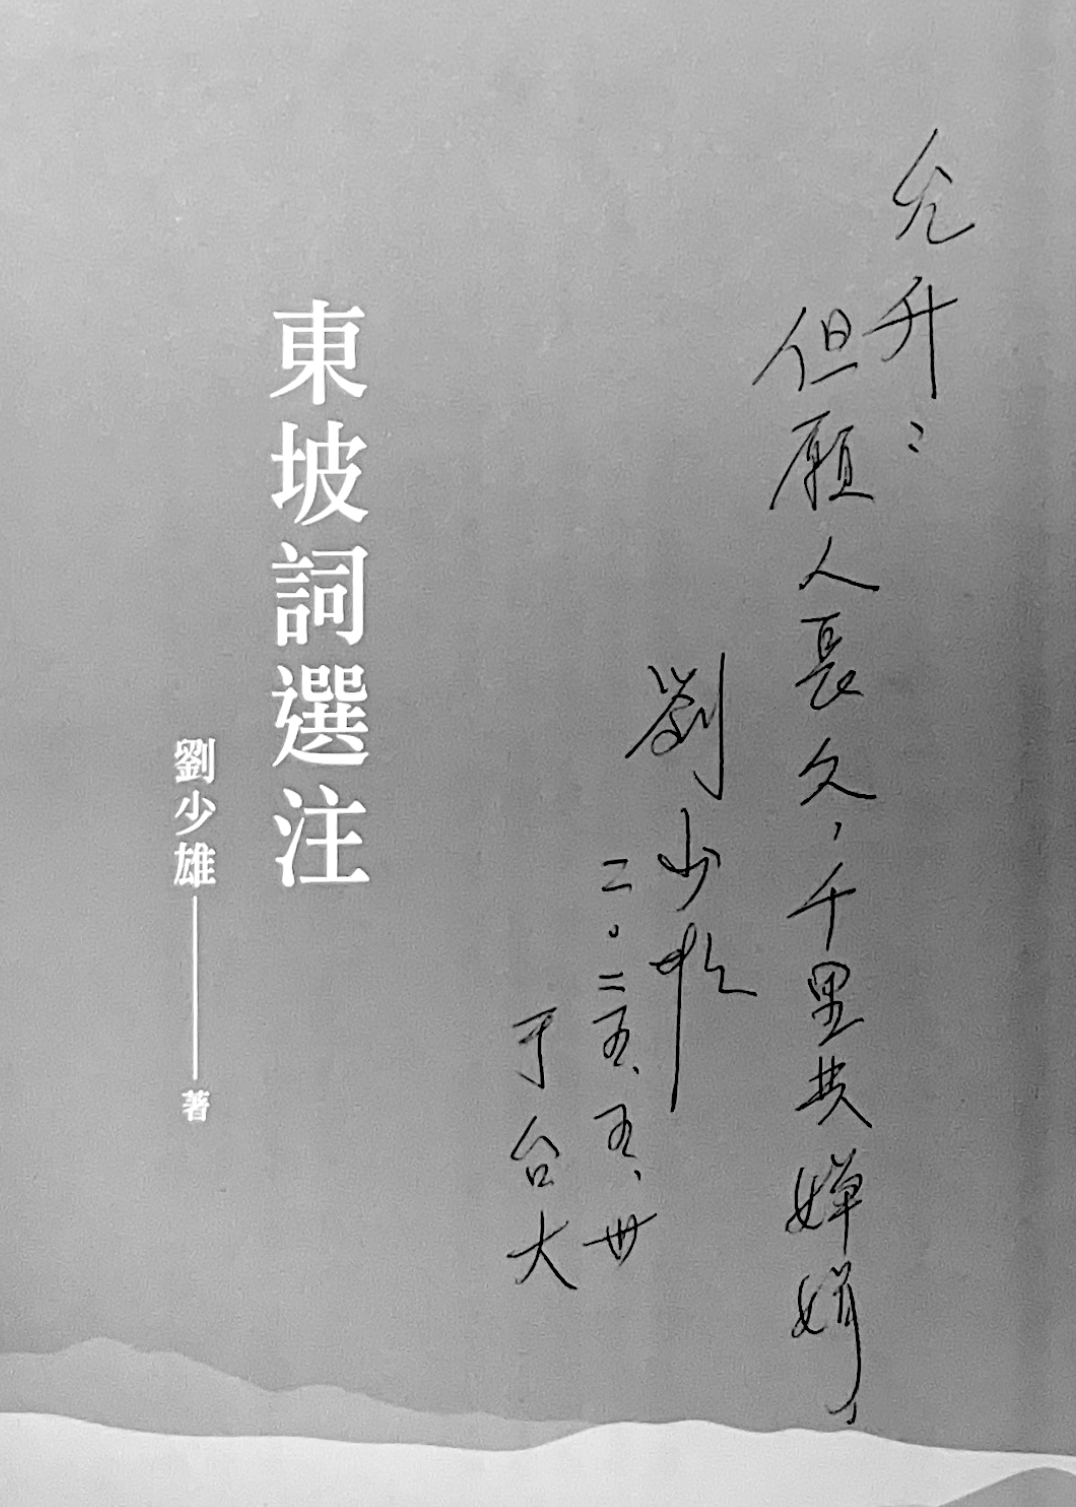 允升：
但願人長久，千里共嬋娟，
劉少雄
二〇二五、五、卅
于台大
東坡詞選注
劉少雄
著